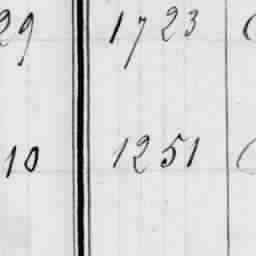 29 1723
10 1251